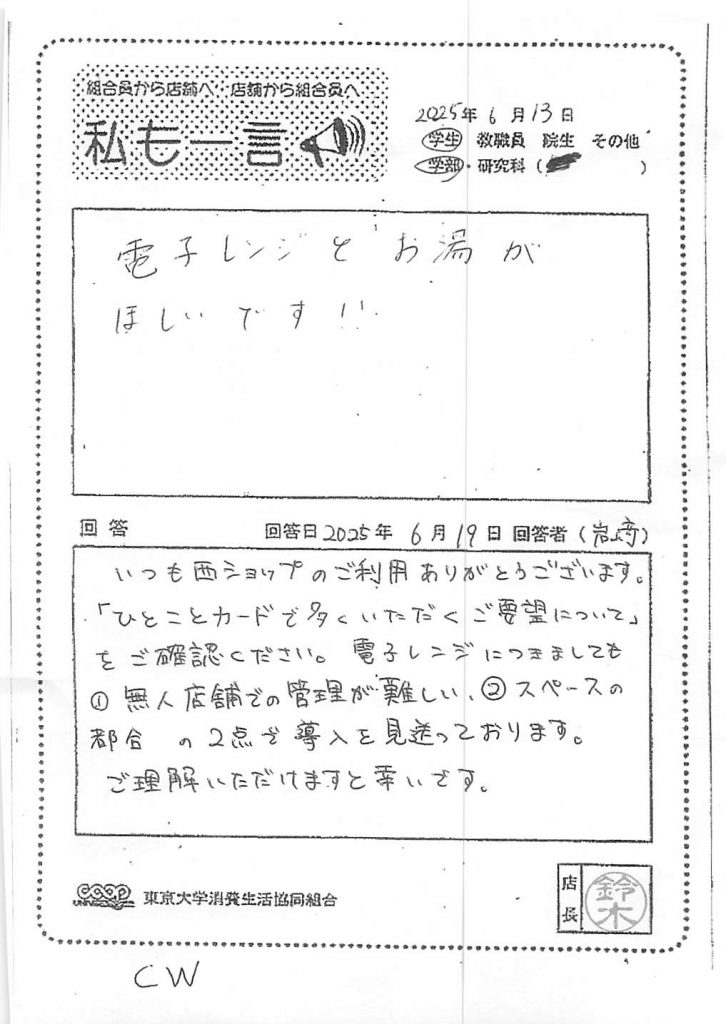 組合員から店舗へ 店舗から組合員へ
私も一言
2025年 6月 13日
学生 教職員 院生 その他
学部・研究科（ ）
電子レンジとお湯が
ほしいです!!
回答 回答日2025年 6月19日 回答者（岩崎）
いつも西ショップのご利用ありがとうございます。
「ひとことカードで多くいただくご要望について」
をご確認ください。電子レンジにつきましても
①無人店舗での管理が難しい、②スペースの
都合 の2点で導入を見送っております。
ご理解いただけますと幸いです。
東京大学消費生活協同組合
店長 鈴木
CW